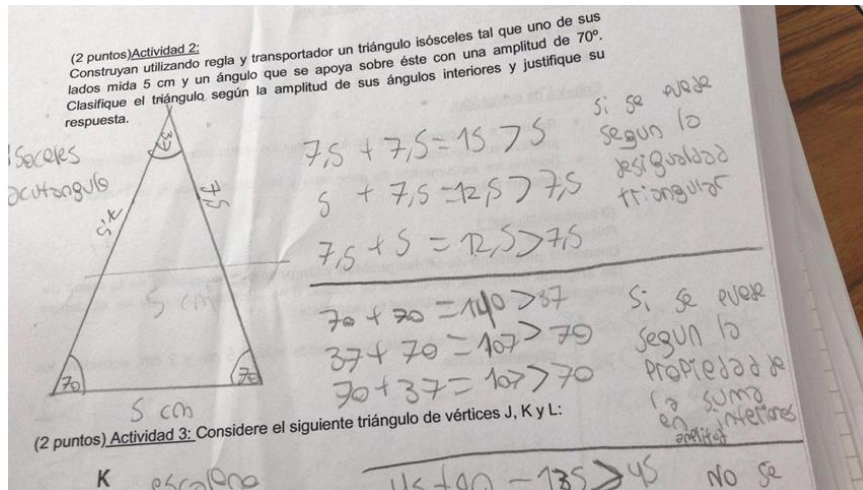 (2 puntos)Actividad 2:
Construyan utilizando regla y transportador un triángulo isósceles tal que uno de sus
lados mida 5 cm y un ángulo que se apoya sobre éste con una amplitud de 70º.
Clasifique el triángulo según la amplitud de sus ángulos interiores y justifique su
respuesta.
isoceles
acutangulo
37
7,5
5 cm
70
70
5 cm
7,5 + 7,5 = 15 > 5
5 + 7,5 = 12,5 > 7,5
7,5 + 5 = 12,5 > 7,5
Si se puede
segun la
desigualdad
triangular
70 + 70 = 140 > 37
37 + 70 = 107 > 70
70 + 37 = 107 > 70
Si se puede
segun la
propiedad de
la suma
en interiores
(2 puntos) Actividad 3: Considere el siguiente triángulo de vértices J, K y L:
K
escaleno
45 + 90 = 135 > 45
NO se